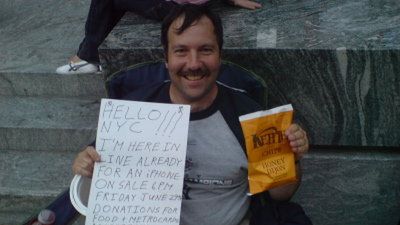 HELLO!!!
NYC
I'M HERE IN
LINE ALREADY
FOR AN iPHONE
ON SALE 6PM
FRIDAY JUNE 29TH
DONATIONS FOR
FOOD + METROCARDS
KETTLE
CHIPS
HONEY
DIJON